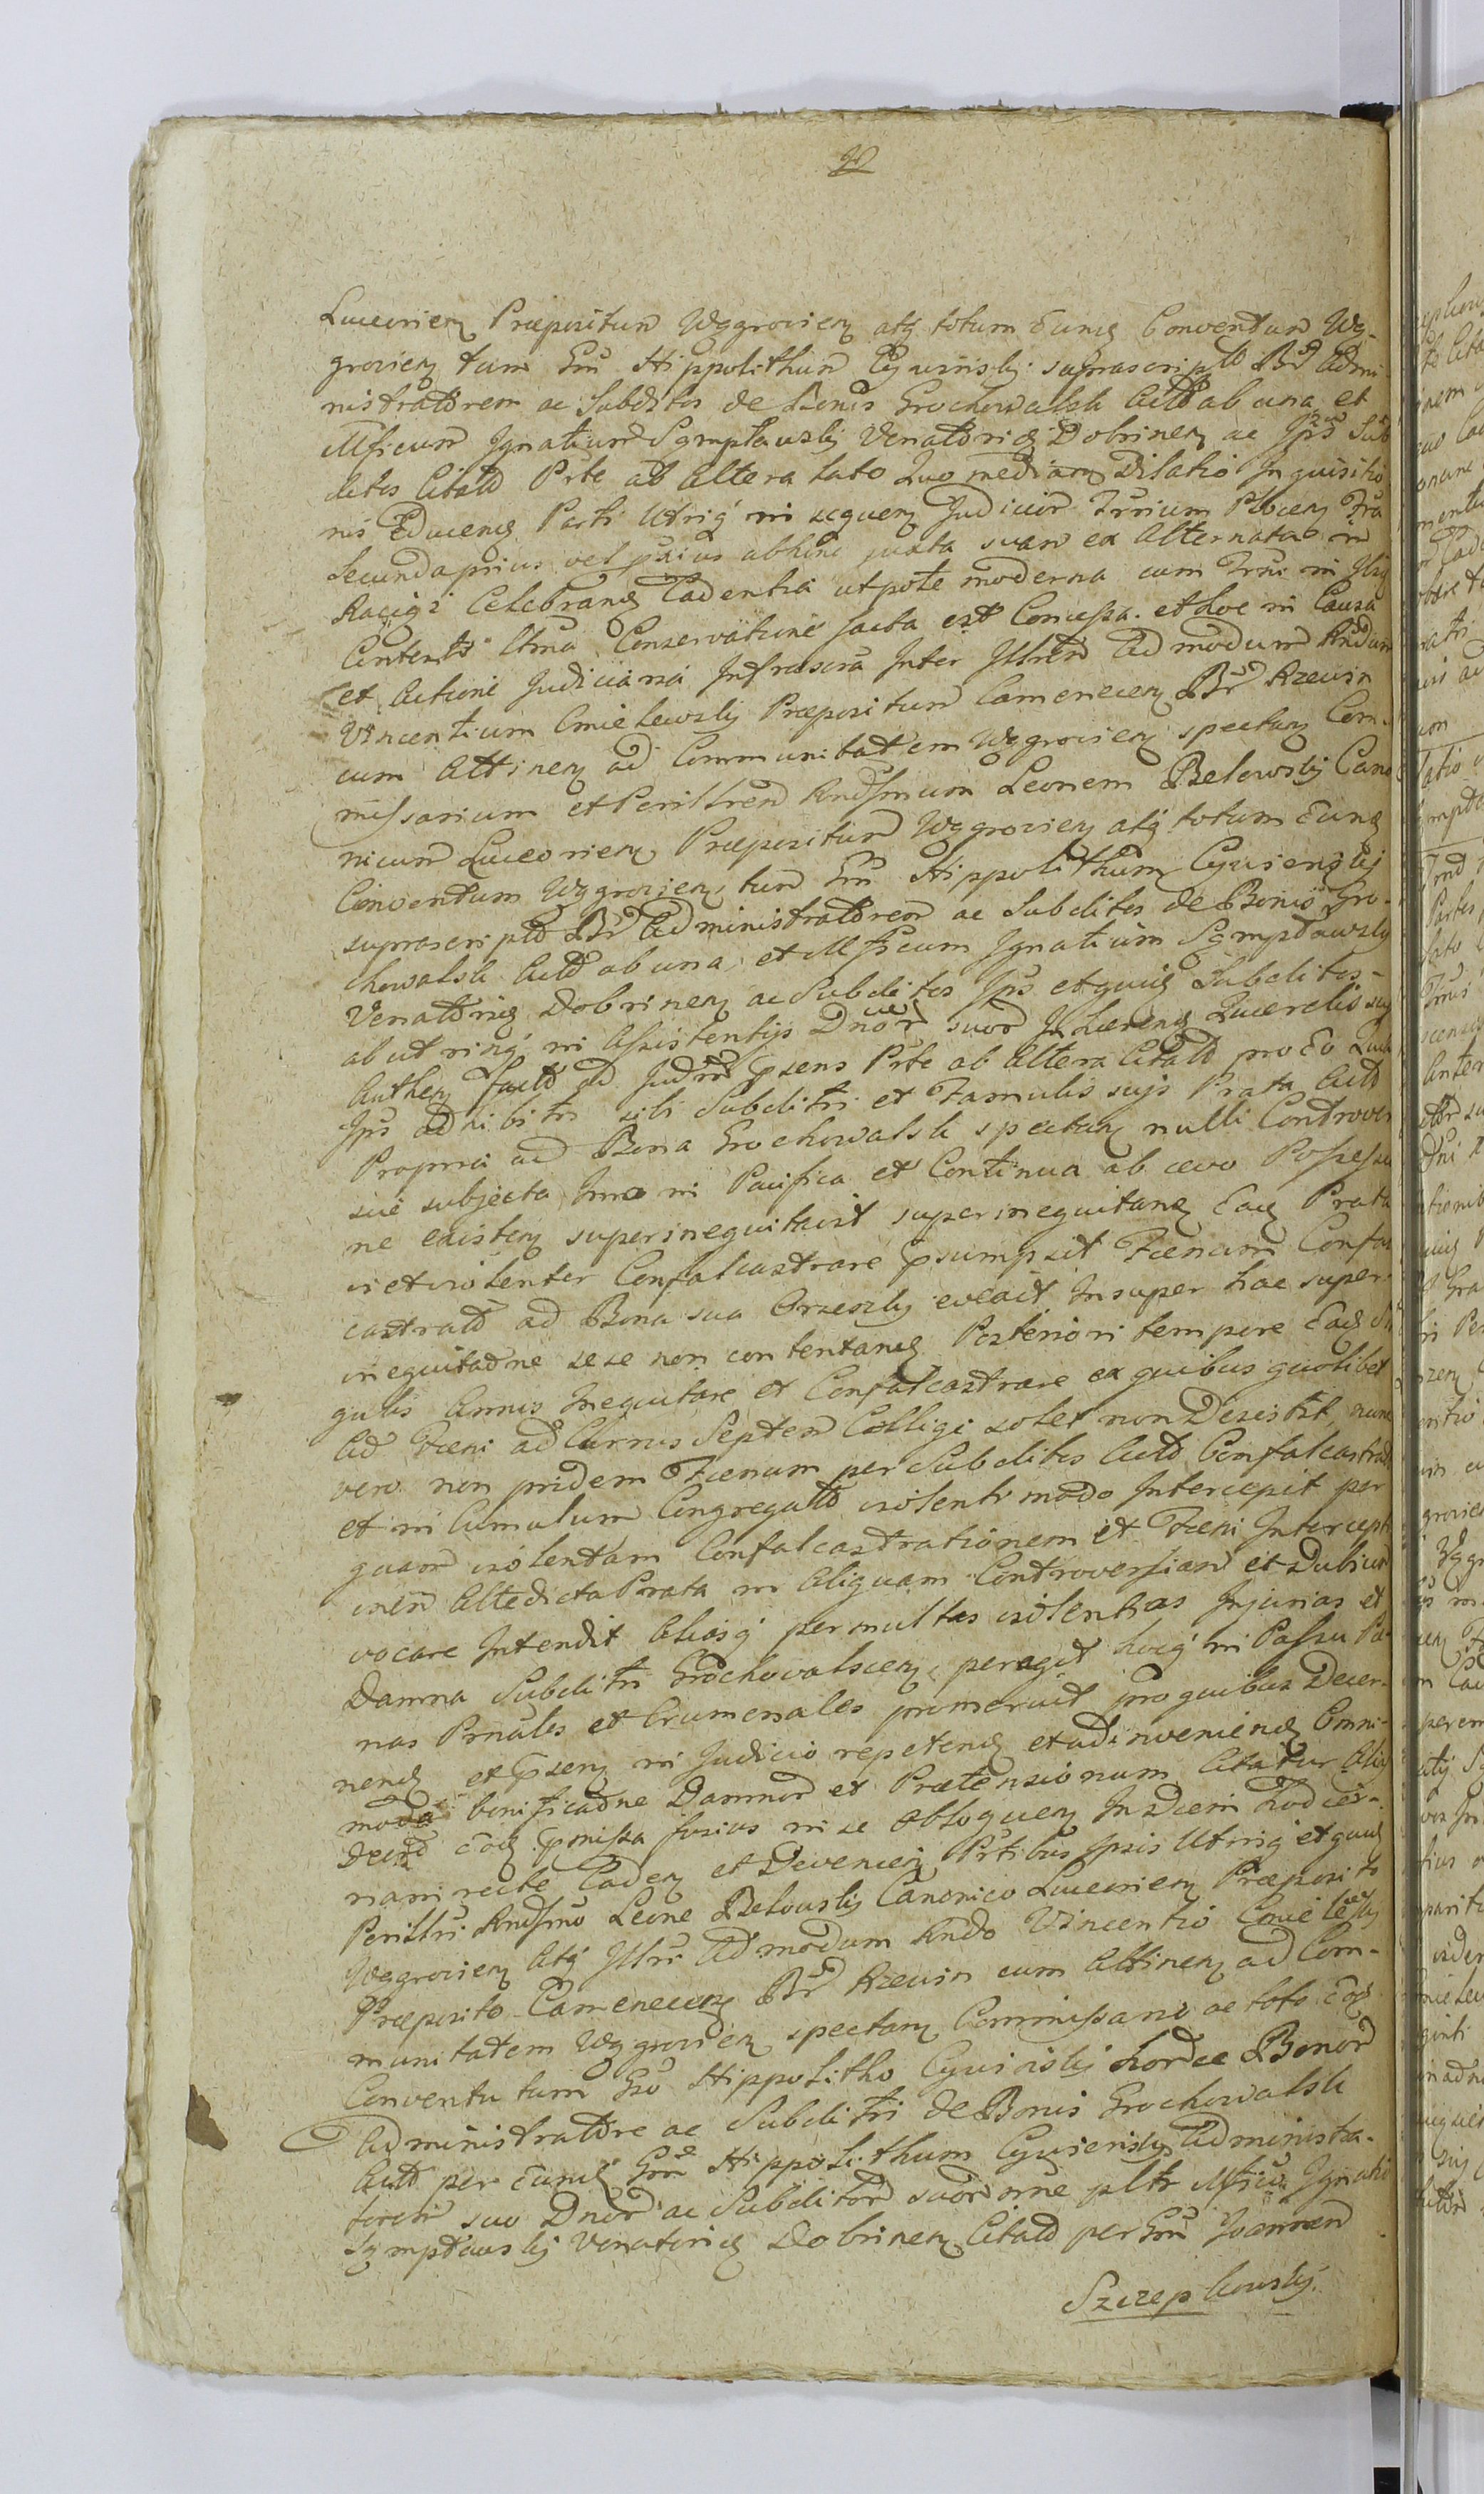 Luceorien Præpositum Węgrovien atq totum Eund Conventum Wę-
grovien tum Gm Hippolithum Cywinsky suprascripto Br Admi-
nistratorem ac Subditos de Bonis Grochowalsk Acto ab una et
Mficum Ignatium Sęmpławsky Venatorid Dobrinen ac Ips Sub
ditos Citato Prte ab altera lato Quo mediam Dilatio Inquisitio
nis Educend Parti Utriq in sequen Judicior Trrium Plocen Tra
Secunda prius vel pcius abhinc juxta suam ex Alternata in
Raciąż Celebrand Cadentia utpote moderna cum Trm in Ilig
Contento Conservatione facta est Concessa. et hoc in Causa
et Actione Judiciaria Infrascra Inter Illrem Admodum Rndum
Vincentium Cmielewsky Præpositum Camenecen Br Rzewin
cum Attinen ad Communitatem Węgrovien spectan Com-
missarium et Perillrem Rndssmum Leonem Belowsky Cano
nicum Luceorien Præpositum Węgrovien atq totum Eund
Conventum Węgrovien, tum Gm Hippolithum Cywiensky
suprascripto Br Administratorem ac Subditos de Bonis Gro-
chowalsk Acto ab una, et Mficum Ignatium Sęmpławsky
Venatorid Dobrinen ac Subditos Ips et quid Subditos-
ab utrinq in Assistentijs Dnor suor Ihæend Querelis suy
Authen facto ad Judm psens Prte ab Altera Citato pro Eo Quia
Ips adhibitis sibi Subditis et Famulis sujs Prata Acto
Propria ad Bona Grochowalsk spectan nulli Controver
sie subjecta Imo in Pacifica et Continua ab ævo Possessio
ne existen superinequitavit superinequitand Ead Prata
vi et violenter Confalcastrare psumpsit Fœnum Confal
castrato ad Bona sua Orszesky evexit Insuper hac super
inequitaõne sese non contentand Posteriori tempore Ead Sin
gulis Annis Inequitare et Confalcastrare ex quibus quotlibet
Ad Fœni ad Currus Septem Colligi solet non Desistit, nunc
vero non pridem Fœnum per Subditos Acto Confalcastrato
et in Cumulum Congregato violenti modo Intercepit per
quam violentam Confalcastrationem et Fœni Intercepti
onem Altedicta Prata in Aliquam Controversiam et Dubium
vocare Intendit Aliasq permultas violentias Injurias et
Damna Subditis Grochowalscen, peragit hocq in Passu Pœ-
nas Prnales et Crumenales promeruit pro quibus Decer-
nend et psen in Judicio repetend et adinveniend Omni-
moda bonificaõne Damnor et Prætensionum Citatur Aliq
Decrd Eod pmissa fusius in se obloquen In Diem hodier-
nam recte Caden et Devenien Prtibus Ipsis Utrinq et quid
Perillri Rndssmo Leone Belowsky Canonico Luceorien Præposito
Węgrovien Atq Illri Admodum Rndo Vincentio Cmielewsky
Præposito Camenecen Br Rzewin cum Attinen ad Com-
munitatem Węgrovien spectan Commissario ac toto Eod
Conventu tum Gso Hippolitho Cywinsky horce Bonor
Administratore ac Subditis de Bonis Grochowalsk
Acto per Eund Gm Hippolithum Cywiensky Administra-
torem suo Dnor ac Subditor suor oñe pltr Mfico Ignatio
Sympławsky Venatorid Dobrinen Citato per Gm Joannem
Szczepkowsky.